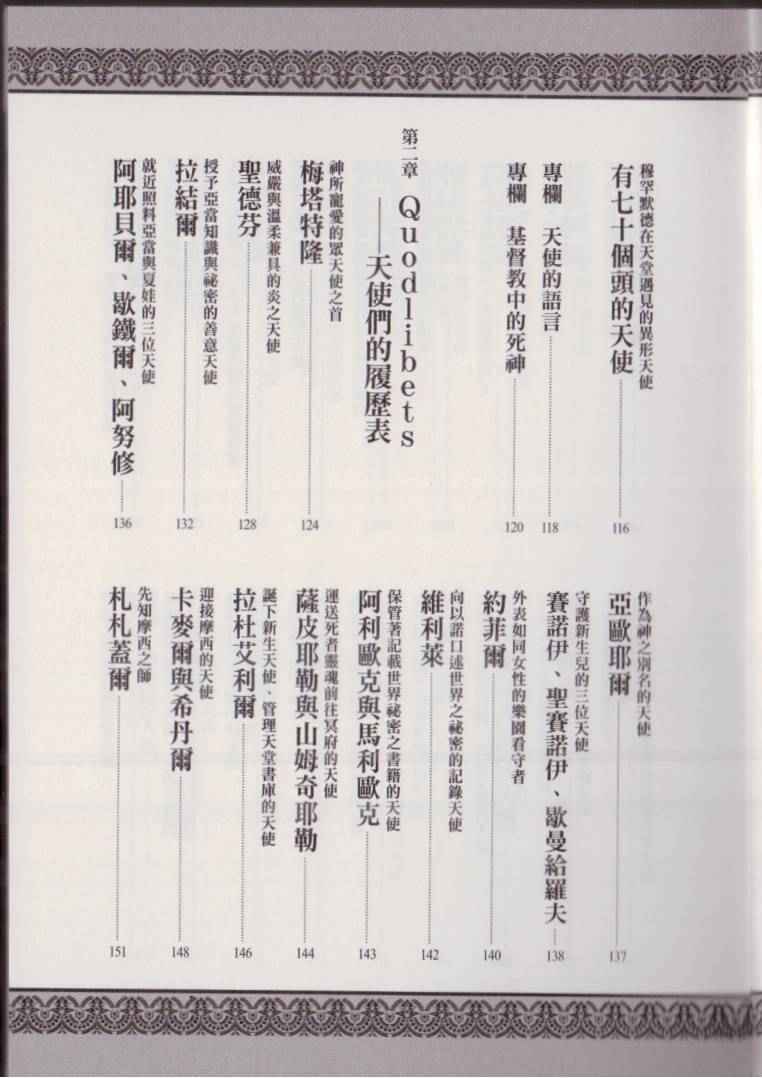 穆罕默德在天堂遇見的異形天使
有七十個頭的天使 116
專欄 天使的語言 118
專欄 基督教中的死神 120
第二章 Quodlibets
——天使們的履歷表
神所寵愛的眾天使之首
梅塔特隆 124
威嚴與溫柔兼具的炎之天使
聖德芬 128
授予亞當知識與祕密的善意天使
拉結爾 132
就近照料亞當與夏娃的三位天使
阿耶貝爾、歇鐵爾、阿努修 136
作為神之別名的天使
亞歐耶爾 137
守護新生兒的三位天使
賽諾伊、聖賽諾伊、歇曼給羅夫 138
外表如同女性的樂園看守者
約菲爾 140
向以諾口述世界之祕密的記錄天使
維利萊 142
保管著記載世界祕密之書籍的天使
阿利歐克與馬利歐克 143
運送死者靈魂前往冥府的天使
薩皮耶勒與山姆奇耶勒 144
誕下新生天使、管理天堂書庫的天使
拉杜艾利爾 146
迎接摩西的天使
卡麥爾與希丹爾 148
先知摩西之師
札札蓋爾 151